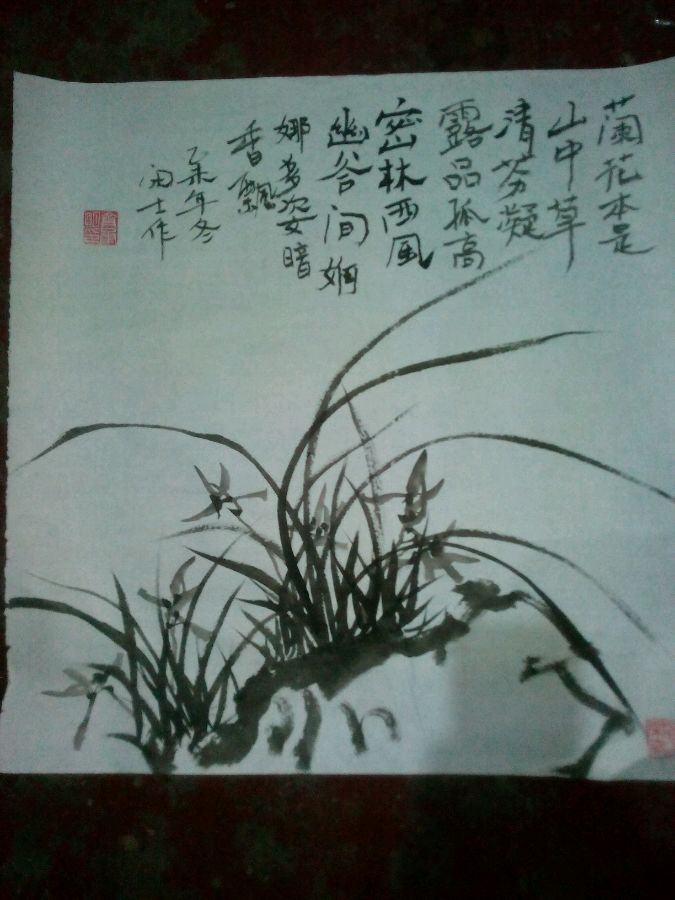 蘭花本是
山中草
清芬凝
露品孤高
密林西風
幽谷间婀
娜多姿暗
香飄
年冬
士作